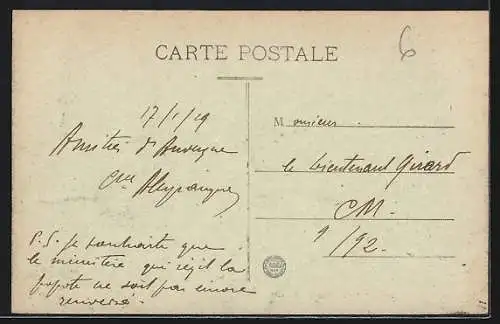 CARTE POSTALE
6
17/1/19
Amitiés d'Auvergne
M onsieur
le Lieutenant Girard
CM.
9/92.
P.S. Je souhaite que
le ministère qui régit la
popote ne soit pas encore
renversé.